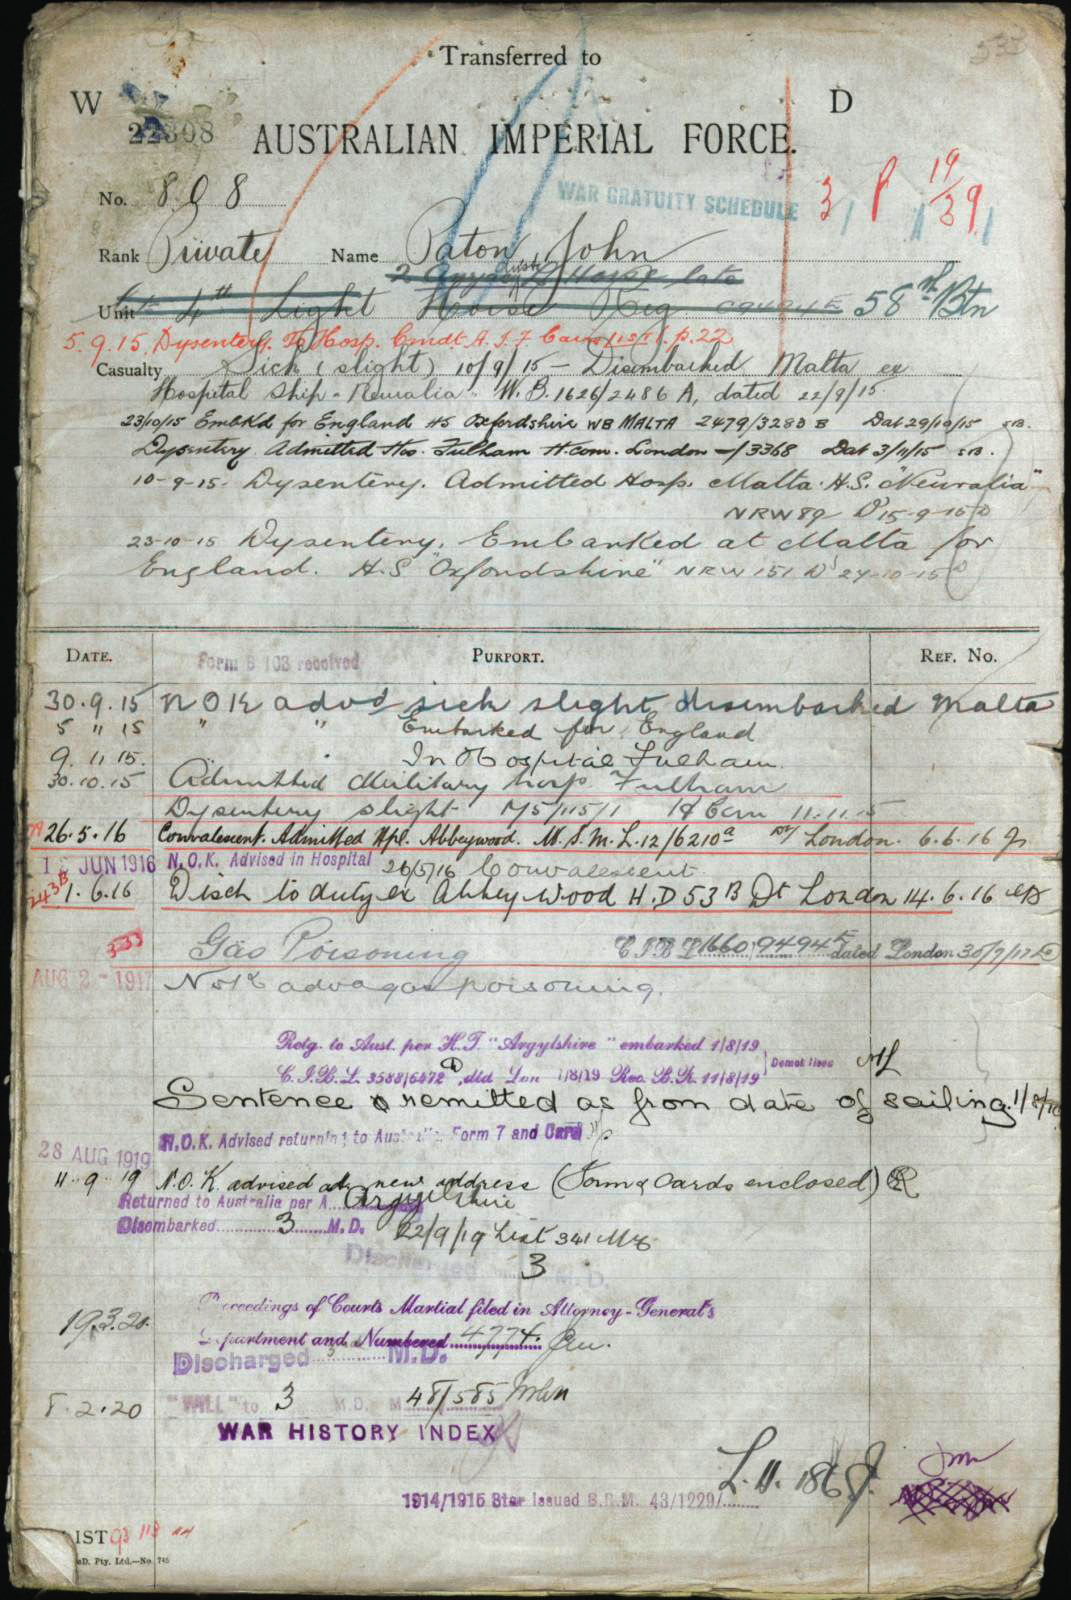 Transferred to
W D
22308
AUSTRALIAN IMPERIAL FORCE.
No. 808
WAR GRATUITY SCHEDULE 3 P 19/39
Rank Private Name Paton John
2 Horse late
Unit 4th Light Horse Reg 58th Btn
5.9.15. Dysentery. To Hosp. Cmdt. A.I.F Cairo p.22
Casualty Sick (slight) 10/9/15 – Disembarked Malta ex
Hospital Ship - Neuralia. W.B. 1626/2486 A, dated 22/9/15
23/10/15 Embk'd for England HS Oxfordshire WB MALTA 2479/3283 B Dat 29/10/15 SB.
Dysentery Admitted Hos. Fulham H.com. London –/3368 Dat 3/11/15 SB.
10-9-15. Dysentery. Admitted Hosp. Malta. H.S. "Neuralia"
NRW 89 D 15-9-15
23-10-15 Dysentery. Embarked at Malta for
England. H.S "Oxfordshire" NRW 151 D 24-10-15
DATE. PURPORT. REF. NO.
Form B 103 received
30.9.15 NOK advd sick slight, disembarked Malta
5 " 15 " " Embarked for England
9.11.15. " In Hospital Fulham.
30.10.15 Admitted Military hosp. Fulham
Dysentery slight 11.11.15
26.5.16 Convalescent. Admitted Hpl. Abbeywood. M.S.M.L.12/6210a London. 6.6.16
JUN 1916 N.O.K. Advised in Hospital 26/5/16 Convalescent.
1.6.16 Disch to duty ex Abbey Wood H.D 53 B Dt London 14.6.16
333 Gas Poisoning C I B L 1660 9494E dated London 30/7/17
AUG 2 - 1917 Nok adv gas poisoning.
Retg. to Aust. per H.T. "Argylshire" embarked 1/8/19
C.I.B.L. 3588/6572, dtd Lon 1/8/19 Rec. B.R. 11/8/19
Sentence remitted as from date of sailing. 1/8/19
28 AUG 1919 N.O.K. Advised returning to Australia Form 7 and Card
11-9-19 N.O.K. advised at new address (Form & Cards enclosed)
Returned to Australia per A Argyllshire
Disembarked 3 M.D. 22/9/19 List 341
Discharged 3 M.D.
Proceedings of Courts Martial filed in Attorney-General's
19.3.20. Department and Numbered 4774.
Discharged M.D.
8.2.20 "WILL" to 3 M.D. M 48/585
WAR HISTORY INDEX
L.H. 1868
1914/1915 Star Issued B.R.M. 43/1229/
LIST 93
D. Pty. Ltd.—No. 745